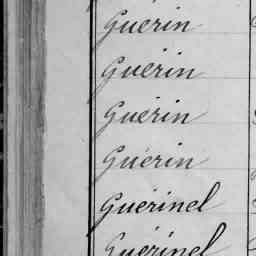 Guérin
Guérin
Guérin
Guérin
Guérinel
Guérinel